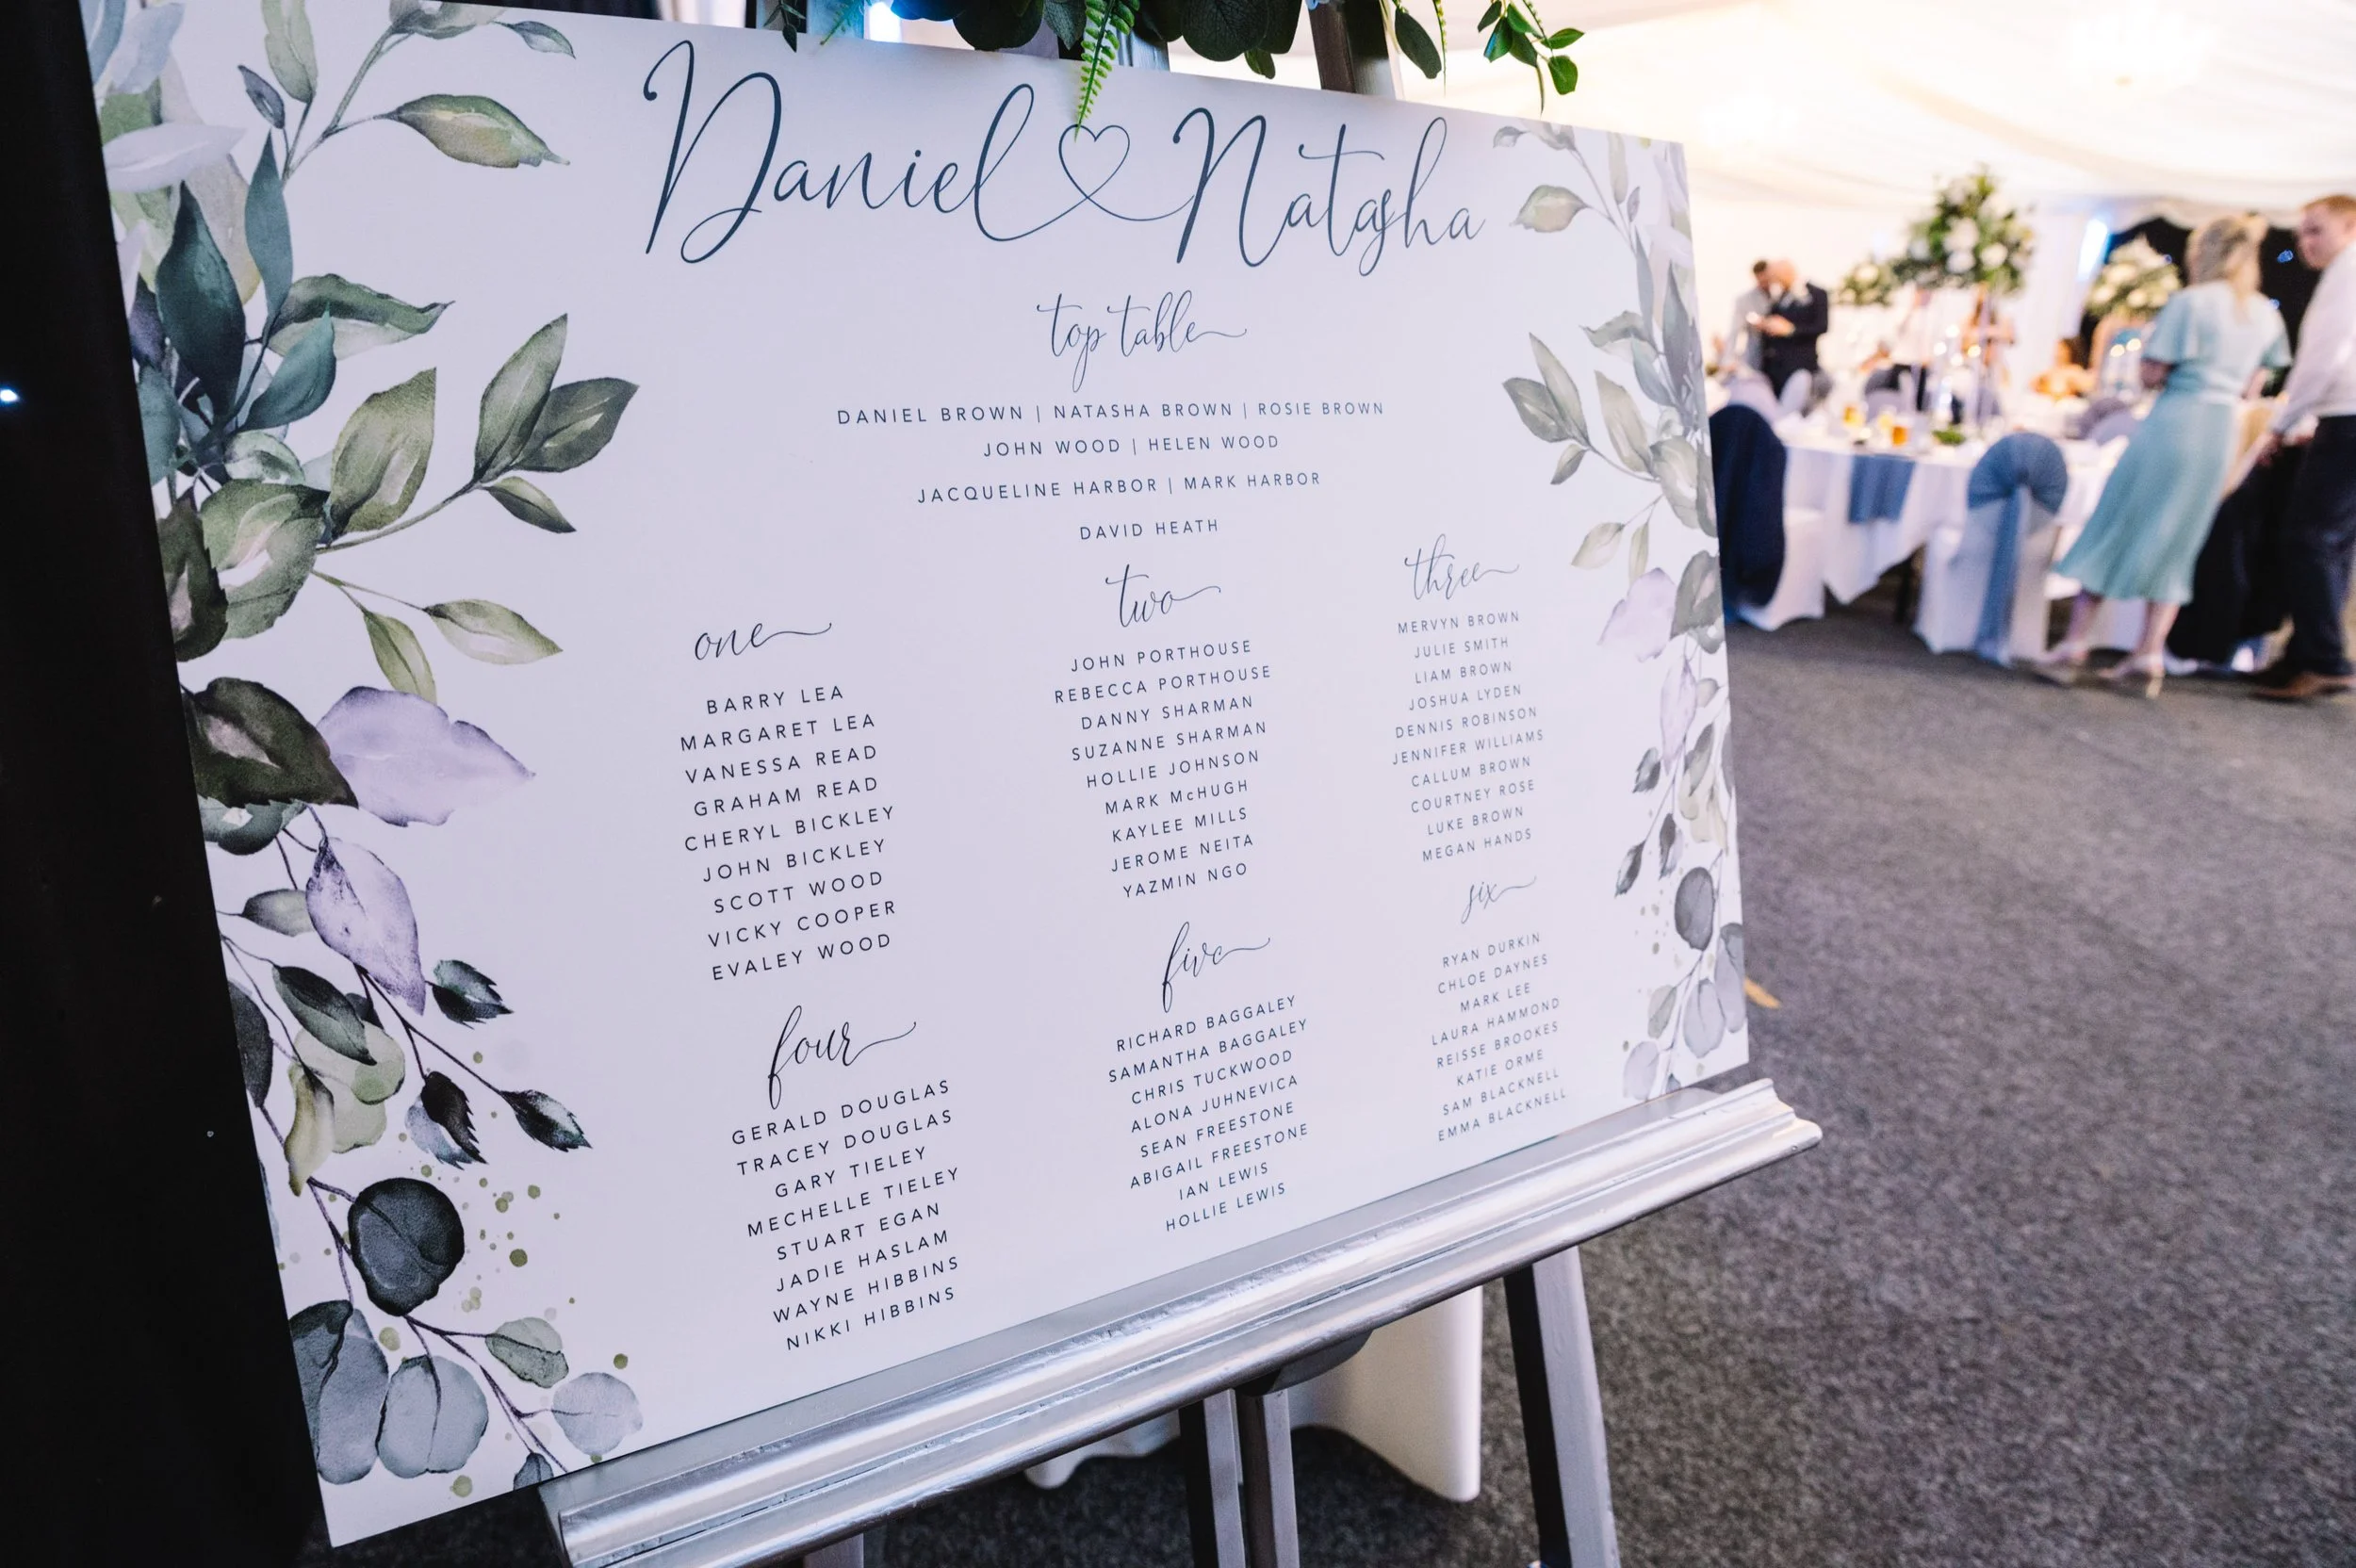 Daniel Natasha
top table
DANIEL BROWN | NATASHA BROWN | ROSIE BROWN
JOHN WOOD | HELEN WOOD
JACQUELINE HARBOR | MARK HARBOR
DAVID HEATH
one
BARRY LEA
MARGARET LEA
VANESSA READ
GRAHAM READ
CHERYL BICKLEY
JOHN BICKLEY
SCOTT WOOD
VICKY COOPER
EVALEY WOOD
two
JOHN PORTHOUSE
REBECCA PORTHOUSE
DANNY SHARMAN
SUZANNE SHARMAN
HOLLIE JOHNSON
MARK McHUGH
KAYLEE MILLS
JEROME NEITA
YAZMIN NGO
three
MERVYN BROWN
JULIE SMITH
LIAM BROWN
JOSHUA LYDEN
DENNIS ROBINSON
JENNIFER WILLIAMS
CALLUM BROWN
COURTNEY ROSE
LUKE BROWN
MEGAN HANDS
four
GERALD DOUGLAS
TRACEY DOUGLAS
GARY TIELEY
MECHELLE TIELEY
STUART EGAN
JADIE HASLAM
WAYNE HIBBINS
NIKKI HIBBINS
five
RICHARD BAGGALEY
SAMANTHA BAGGALEY
CHRIS TUCKWOOD
ALONA JUHNEVICA
SEAN FREESTONE
ABIGAIL FREESTONE
IAN LEWIS
HOLLIE LEWIS
six
RYAN DURKIN
CHLOE DAYNES
MARK LEE
LAURA HAMMOND
REISSE BROOKES
KATIE ORME
SAM BLACKNELL
EMMA BLACKNELL